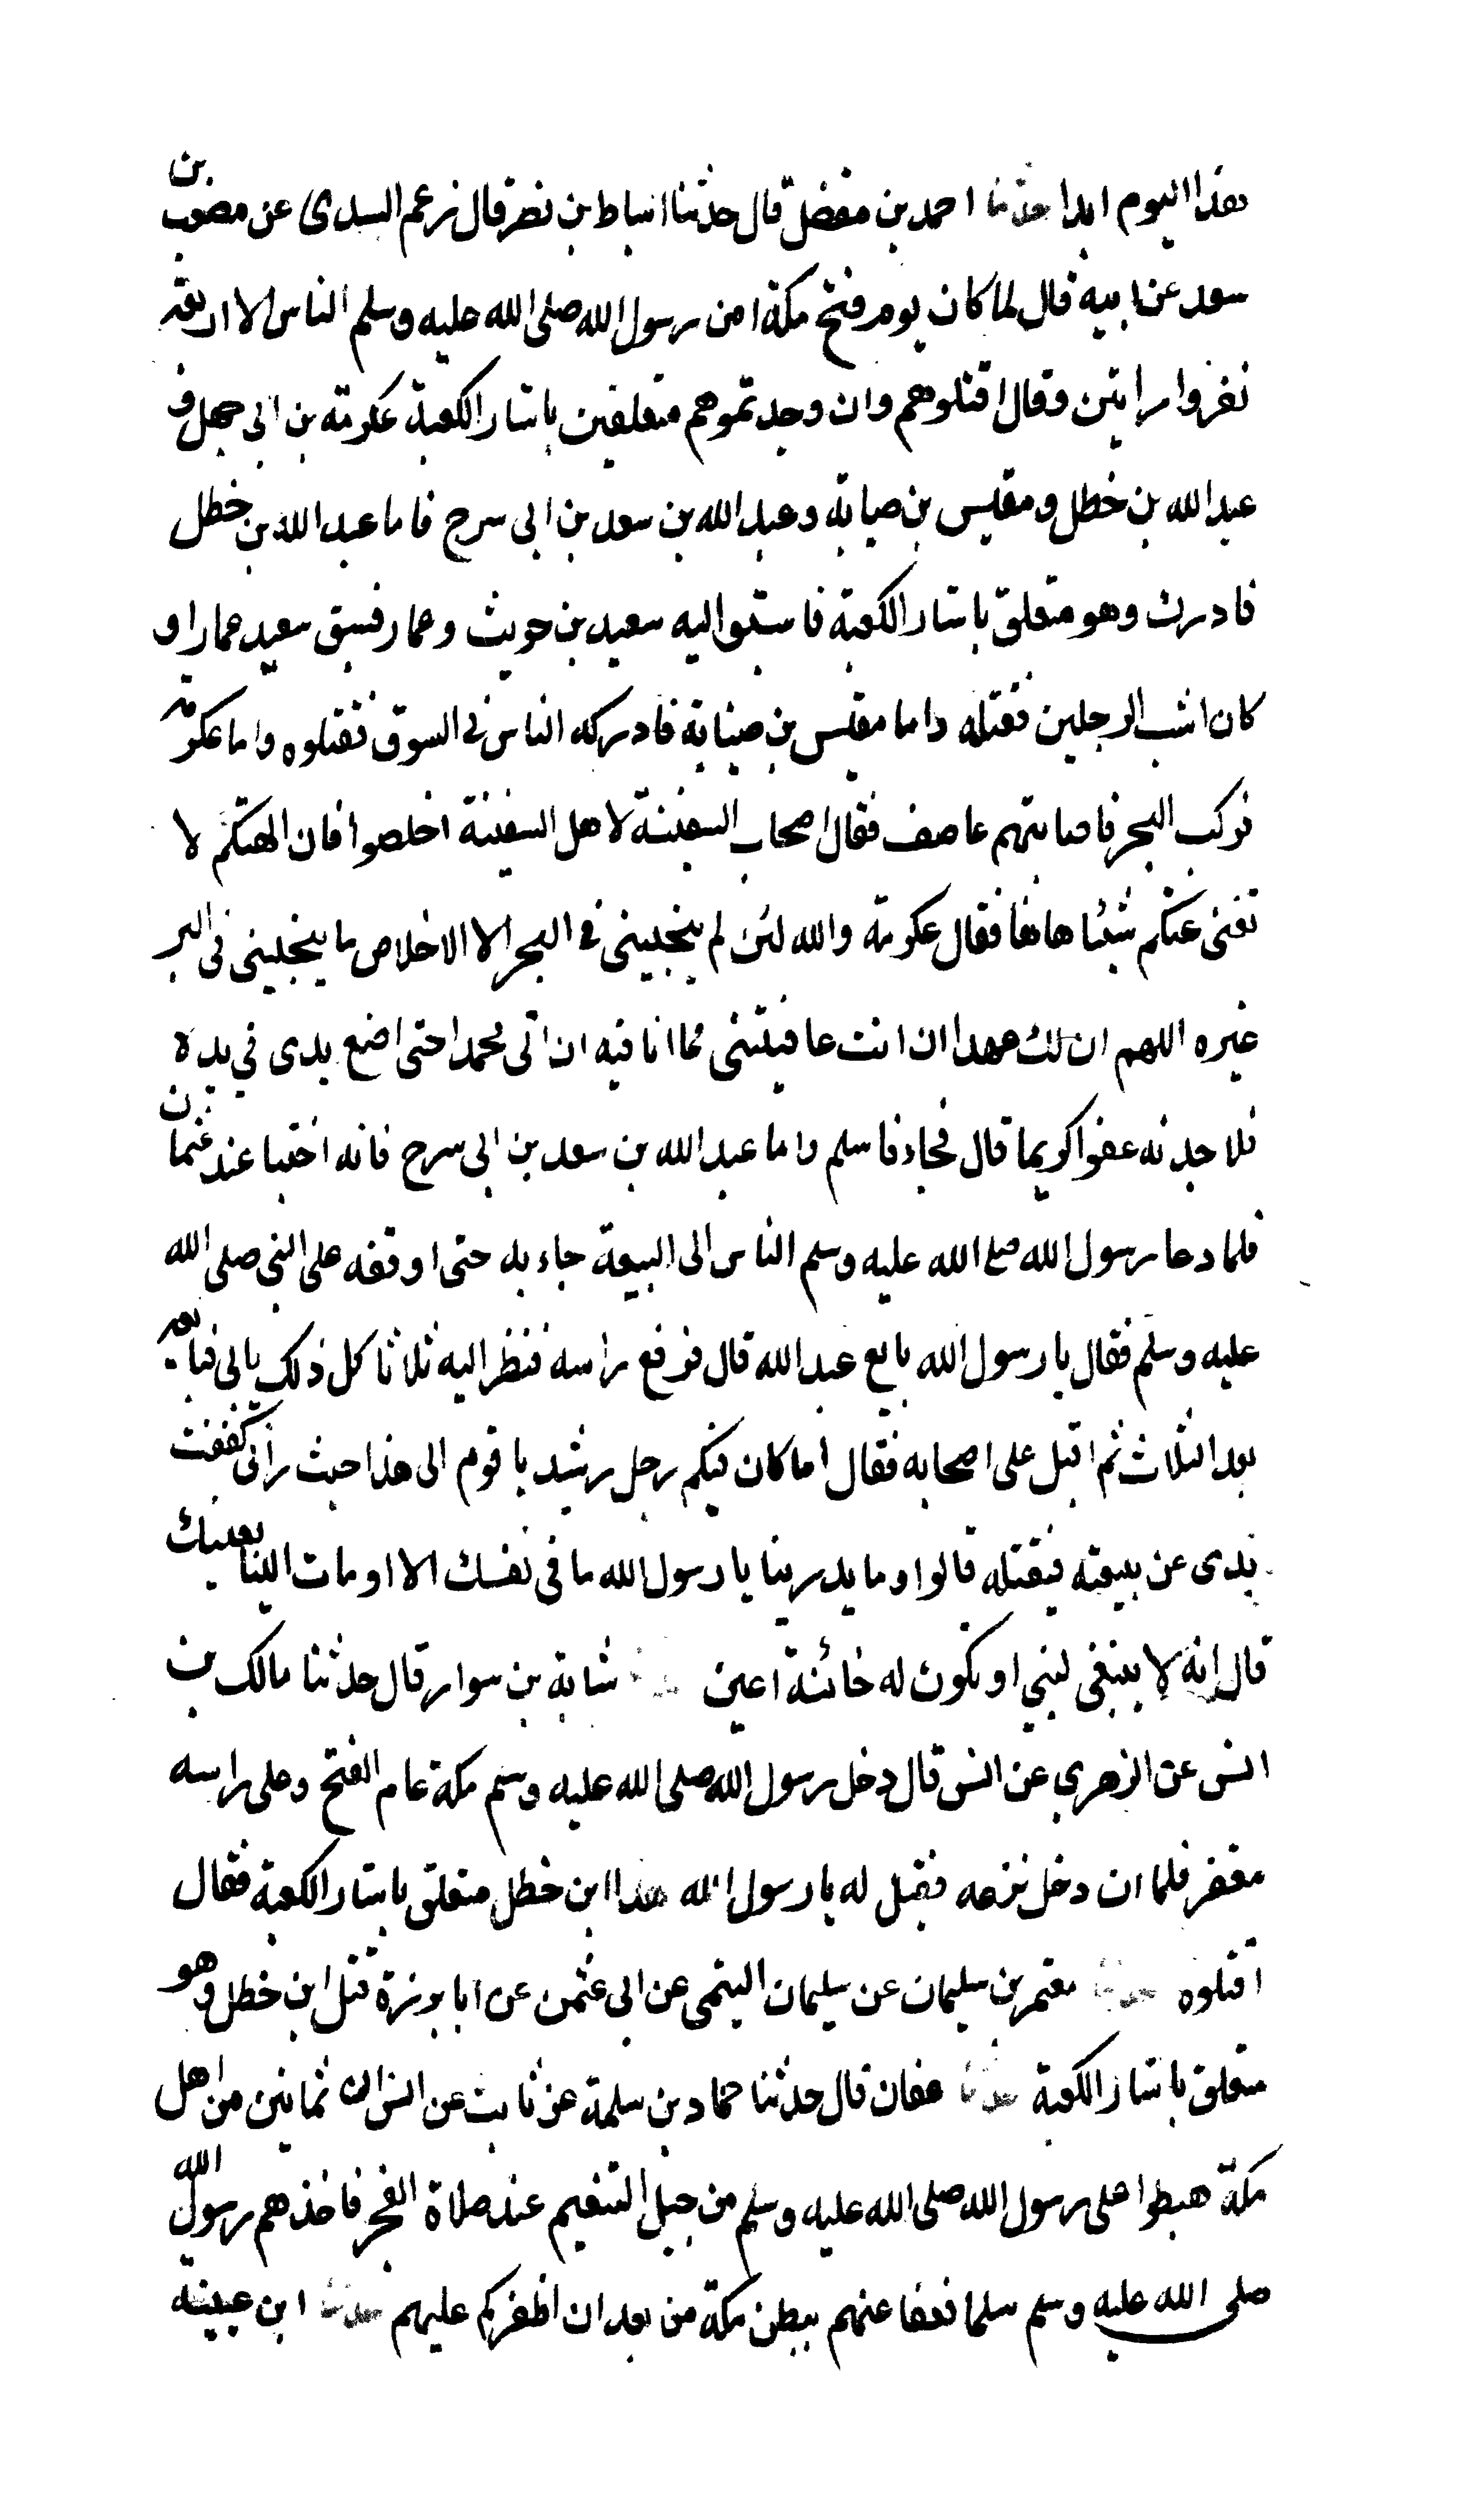 هذا اليوم ابدا حدثنا احمد بن مفضل قال حدثنا اسباط بن نصر قال زعم السدى عن مصعب بن
سعد عن ابيه قال لما كان يوم فتح مكة امن رسول الله صلى الله عليه وسلم الناس الا اربعة
نفر وامراتين وقال اقتلوهم وان وجدتموهم متعلقين باستار الكعبة عكرمة بن ابى جهل و
عبد الله بن خطل ومقيس بن صبابة وعبد الله بن سعد بن ابى سرح فاما عبد الله بن خطل
فادرك وهو متعلق باستار الكعبة فاستبق اليه سعيد بن حريث وعمار فسبق سعيد عمارا و
كان اشب الرجلين فقتله واما مقيس بن صبابة فادركه الناس فى السوق فقتلوه واما عكرمة
فركب البحر فاصابتهم عاصف فقال اصحاب السفينة لاهل السفينة اخلصوا فان الهتكم لا
تغنى عنكم شيئا هاهنا فقال عكرمة والله لئن لم ينجينى فى البحر الا الاخلاص ما ينجينى فى البر
غيره اللهم ان لك عهدا ان انت عافيتنى مما انا فيه ان اتى محمدا حتى اضع يدى فى يده
فلاجدنه عفوا كريما قال فجاء فاسلم واما عبد الله بن سعد بن ابى سرح فانه اختبا عند عثمان
فلما دعا رسول الله صلى الله عليه وسلم الناس الى البيعة جاء به حتى اوقفه على النبى صلى الله
عليه وسلم فقال يا رسول الله بايع عبد الله قال فرفع راسه فنظر اليه ثلاثا كل ذلك يابى فبايعه
بعد الثلاث ثم اقبل على اصحابه فقال اما كان فيكم رجل رشيد يا قوم الى هذا حيث رانى كففت
يدى عن بيعته فيقتله قالوا وما يدرينا يا رسول الله ما فى نفسك الا اومات الينا بعينك
قال انه لا ينبغى لنبي او يكون له خائنة اعين شبابة بن سوار قال حدثنا مالك بن
انس عن الزهري عن انس قال دخل رسول الله صلى الله عليه وسلم مكة عام الفتح وعلى راسه
مغفر فلما ان دخل نزعه فقيل له يا رسول الله هذا ابن خطل متعلق باستار الكعبة فقال
اقتلوه حدثنا معتمر بن سليمان عن سليمان التيمى عن ابى عثمن عن ابا برزة قتل ابن خطل وهو
متعلق باستار الكعبة حدثنا عفان قال حدثنا حماد بن سلمة عن ثابت عن انس ان ثمانين من اهل
مكة هبطوا على رسول الله صلى الله عليه وسلم من جبل التنعيم عند صلاة الفجر فاخذهم رسول الله
صلى الله عليه وسلم سلما فعفا عنهم ببطن مكة من بعد ان اظفركم عليهم حدثنا ابن عيينة